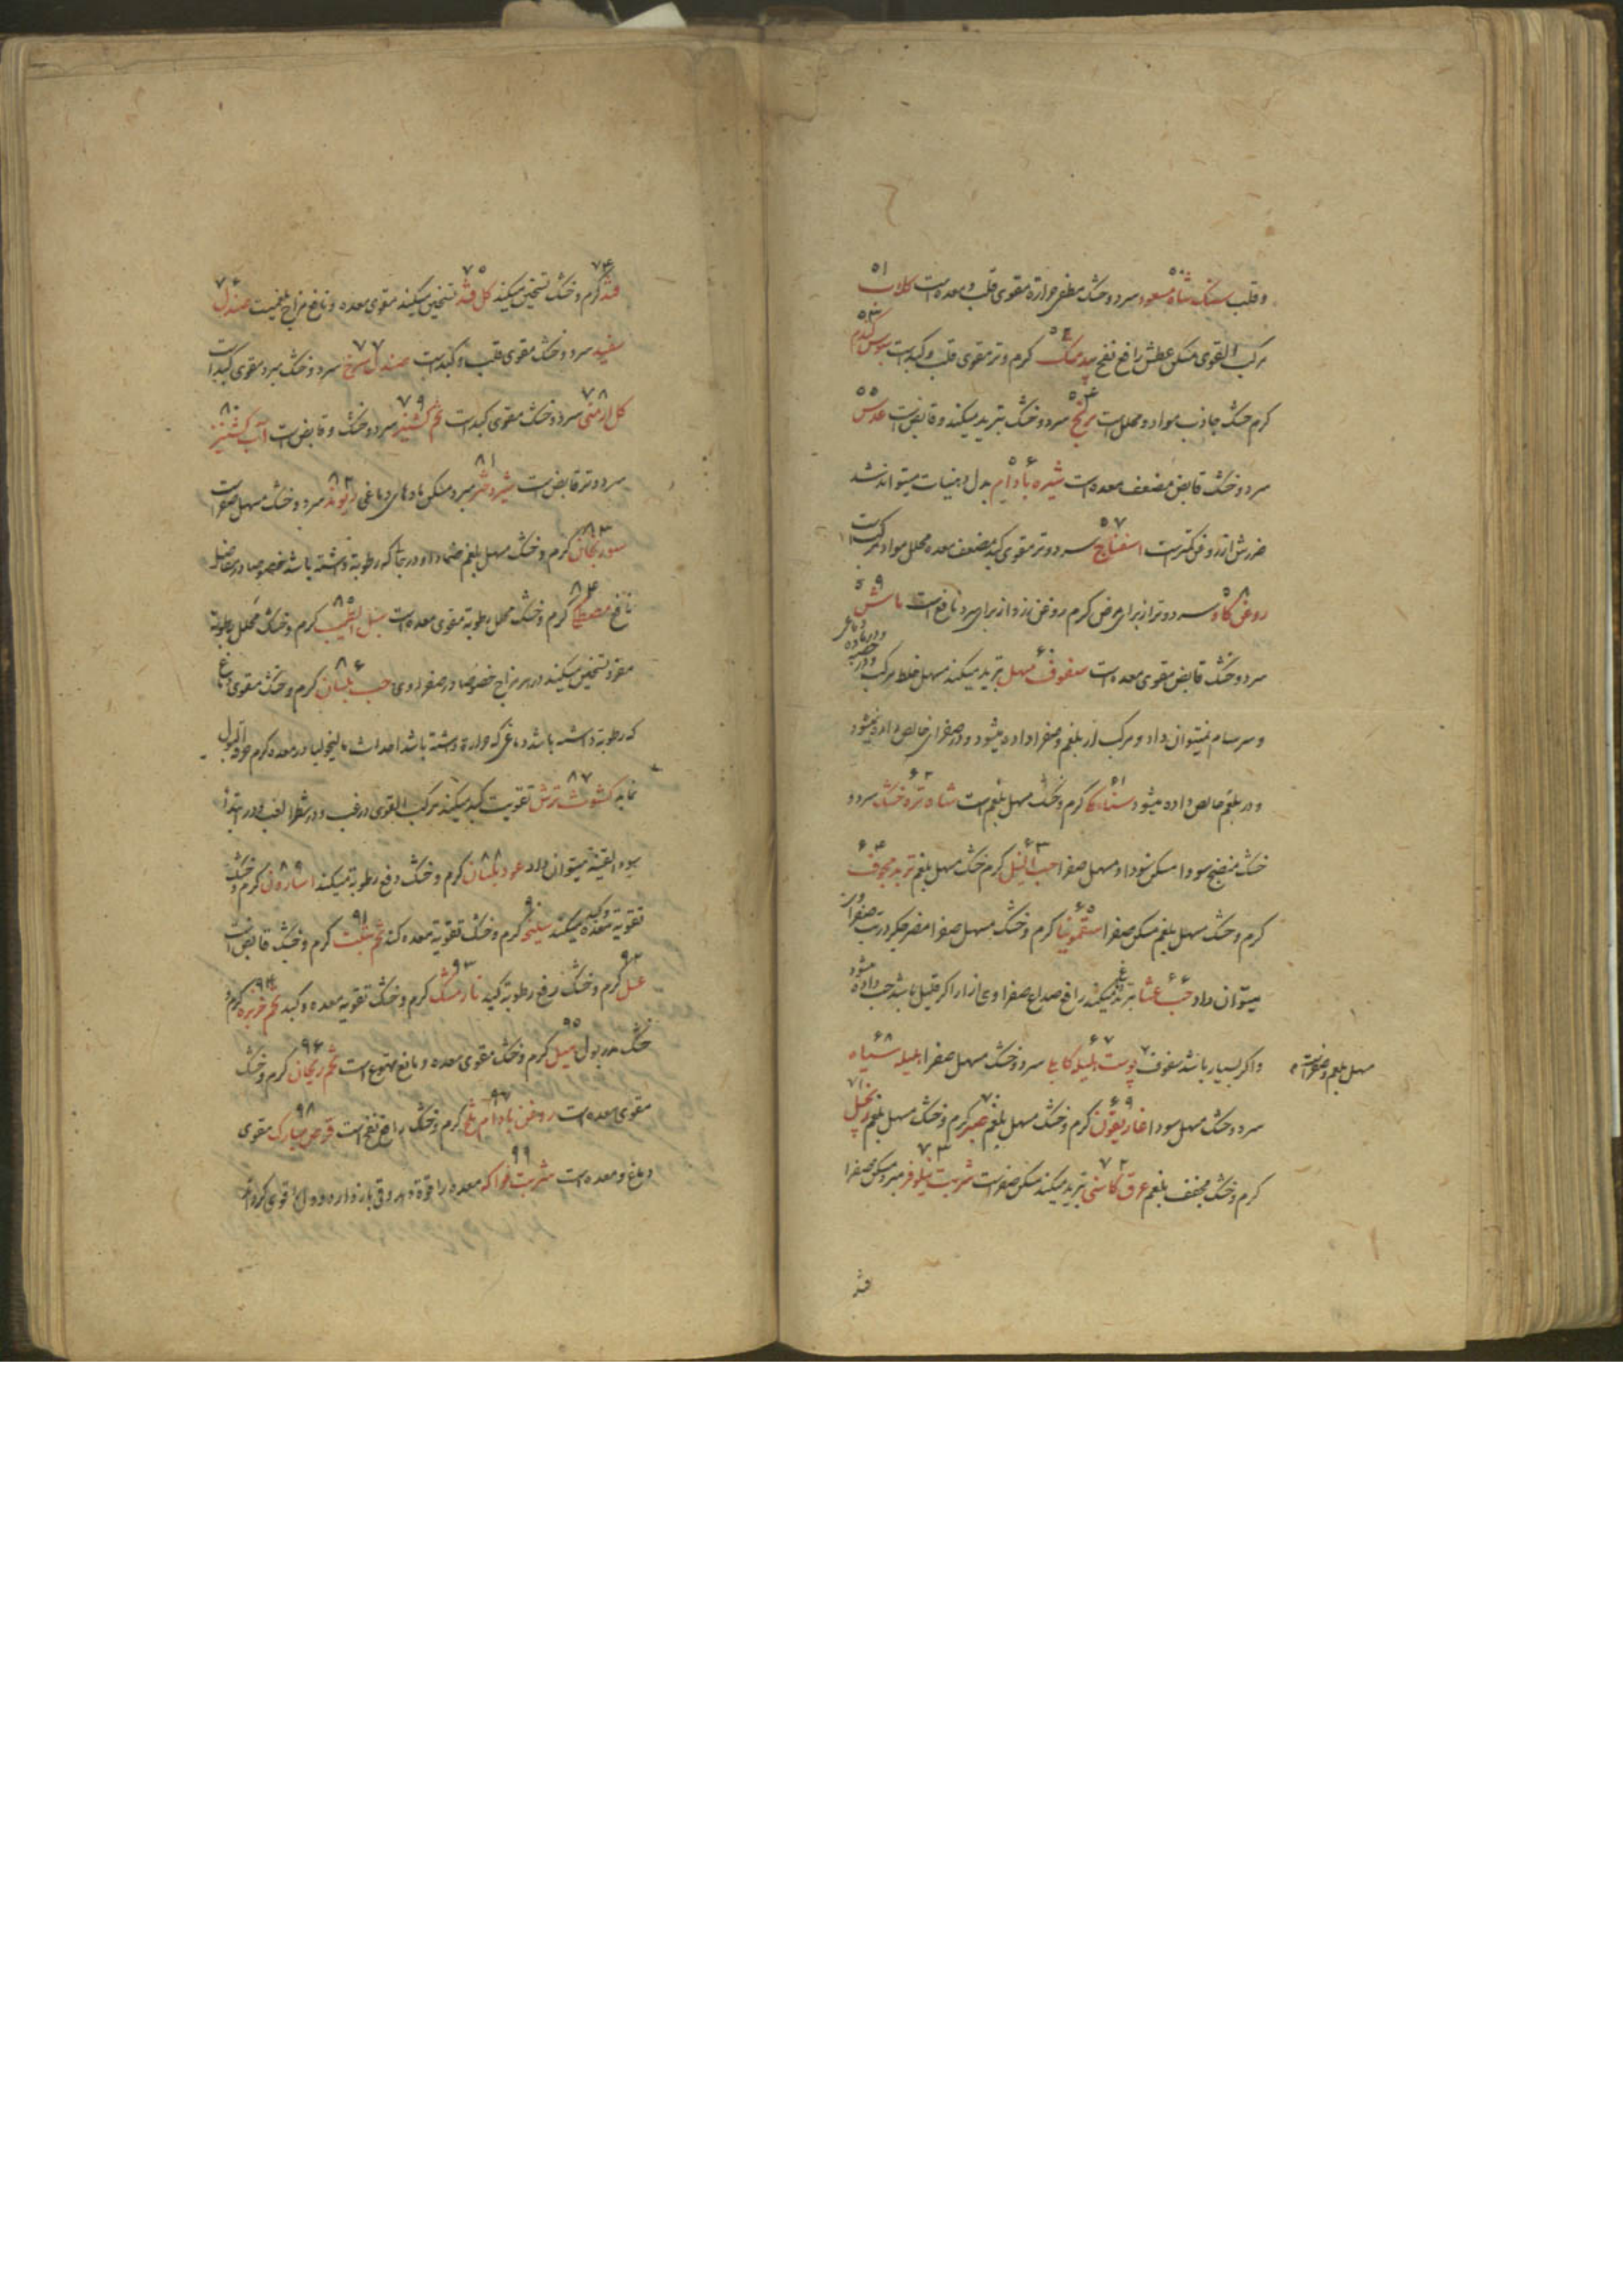 و قلب سنگ شاه مسعود سرد و خشک مطفی حرارة مقوی قلب و معده است کلاب
۵۰ ۵۱
مرکب القوی مسکن عطش رافع نفخ بید مشک کرم و تر مقوی قلب و کبد است سبوس کندم
۵۲ ۵۳
کرم خشک جاذب مواد و محلل است برنج سرد و خشک تبرید میکند و قابض است عدس
۵۴ ۵۵
سرد و خشک قابض مضعف معده است شیره بادام بدل دهنیات میتواند شد
۵۶
ضررش از روغن کمتر است اسفناج سرد و تر مقوی کبد مضعف معده محلل مواد مرکب است
۵۷
روغن کاو سرد و تر از برای مرض کرم روغن زرد از برای سرد نافع است ماش
۵۸ ۵۹
سرد و خشک قابض مقوی معده است سفوف مسهل تبرید میکند مسهل خلط مرکب و در
۶۰
و سرسام نمیتوان داد و مرکب از بلغم و صفرا داده میشود و در صفرای خالص داده نمیشود
و در بلغم خالص داده میشود سناء مکی کرم و خشک مسهل بلغم است شاه تره خشک سرد و
۶۱ ۶۲
خشک منضج سودا مسکن سودا و مسهل صفرا حب النیل کرم خشک مسهل بلغم تربد مجوف
۶۳ ۶۴
کرم و خشک مسهل بلغم مسکن صفرا سقمونیا کرم و خشک مسهل صفرا مضر جکر در تب صفراوی
۶۵
میتوان داد حب عشا تبرید میکند رافع صداع صفراوی ازار اکر قلیل باشد حب داده میشود
۶۶
و اکر بسیار باشد سفوف پوست هلیله کابلی سرد و خشک مسهل صفرا هلیله سیاه
۶۷ ۶۸
مسهل بلغم و صفراست
سرد و خشک مسهل سودا غاریقون کرم و خشک مسهل بلغم صبر کرم و خشک مسهل بلغم زنجبیل
۶۹ ۷۰ ۷۱
کرم و خشک مجفف بلغم عرق کاسنی تبرید میکند مسکن صفراست شربت نیلوفر مبرد مسکن صفرا
۷۲ ۷۳
قند
قند کرم و خشک تسخین میکند کل قند تسخین میکند مقوی معده و نافع مزاج بلغمیست صندل
۷۴ ۷۵ ۷۶
سفید سرد و خشک مقوی قلب و کبد است صندل سرخ سرد و خشک مبرد مقوی کبد است
۷۷
کل ارمنی سرد و خشک مقوی کبد است تخم کشنیز سرد و خشک و قابض است آب کشنیز
۷۸ ۷۹ ۸۰
سرد و تر قابض است شیر دختر مبرد مسکن مادهای دماغی ریوند سرد و خشک مسهل صفراست
۸۱ ۸۲
سورنجان کرم و خشک مسهل بلغم ضماد او در جائی که رطوبة داشته باشد خصوصا در مفاصل
۸۳
نافع مصطکی کرم و خشک محلل رطوبة مقوی معده است سنبل الطیب کرم و خشک محلل رطوبة
۸۴ ۸۵
مفرد تسخین میکند در هر مزاج خصوصا در صفراوی حب بلسان کرم و خشک مقوی دماغ
۸۶
که رطوبة داشته باشد دماغی که حرارة داشته باشد احداث مالیخولیا در معده کرم حرقة البول
نماید کشوث ترش تقویت کبد میکند مرکب القوی در غب و در شطر الغب و در ابتدا
۸۷
سوء القنیه میتوان داد عود بلسان کرم و خشک دفع رطوبة میکند اسارون کرم و خشک
۸۸ ۸۹
تقویة معده و کبد میکند سلیخه کرم و خشک تقویة معده کند تخم شبت کرم و خشک قابض است
۹۰ ۹۱
عسل کرم و خشک رفع رطوبة کند نارمشک کرم و خشک تقویة معده و کبد تخم خربزه کرم و
۹۲ ۹۳ ۹۴
خشک مدر بول هیل کرم و خشک مقوی معده و نافع تهوع است تخم ریحان کرم و خشک
۹۵ ۹۶
مقوی معده است روغن بادام تلخ کرم و خشک رافع نفخ است قرص مبارک مقوی
۹۷ ۹۸
دماغ و معده است شربت فواکه معده را قوة
۹۹